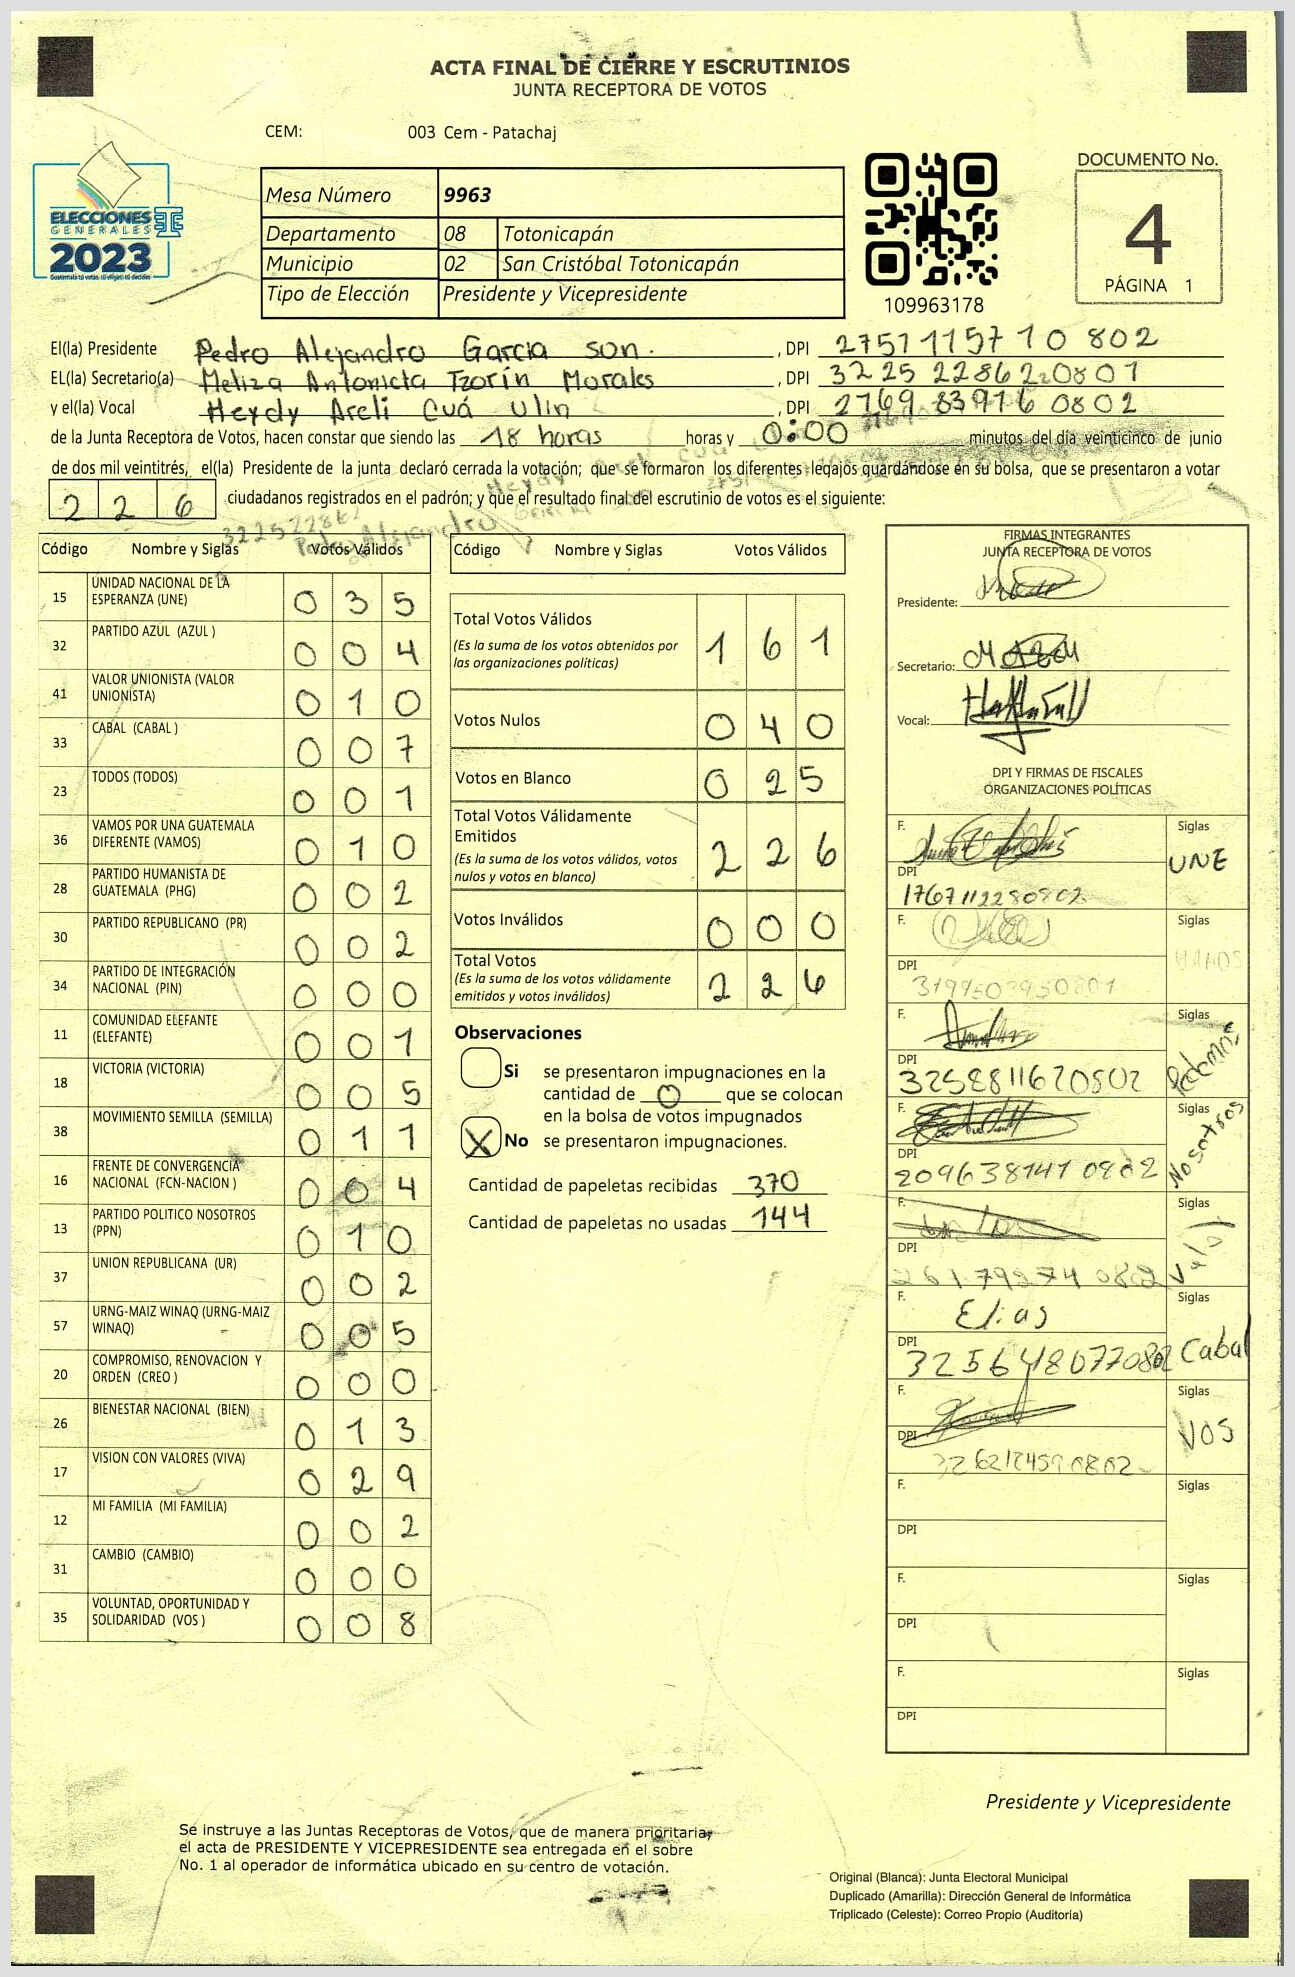 ACTA FINAL DE CIERRE Y ESCRUTINIOS
JUNTA RECEPTORA DE VOTOS
CEM: 003 Cem - Patachaj
ELECCIONES
GENERALES
2023
Guatemala tú votas, tú eliges, tú decides
Mesa Número 9963
Departamento 08 Totonicapán
Municipio 02 San Cristóbal Totonicapán
Tipo de Elección Presidente y Vicepresidente
109963178
DOCUMENTO No.
4
PÁGINA 1
El(la) Presidente Pedro Alejandro Garcia son. , DPI 2751115710802
EL(la) Secretario(a) Meliza Antonieta Tzorín Morales , DPI 3225228620801
y el(la) Vocal Heydy Areli Cuá Ulin , DPI 2769839760802
de la Junta Receptora de Votos, hacen constar que siendo las 18 horas horas y 0:00 minutos del día veinticinco de junio
de dos mil veintitrés, el(la) Presidente de la junta declaró cerrada la votación; que se formaron los diferentes legajos guardándose en su bolsa, que se presentaron a votar
226 ciudadanos registrados en el padrón; y que el resultado final del escrutinio de votos es el siguiente:
Código Nombre y Siglas Votos Válidos
15 UNIDAD NACIONAL DE LA ESPERANZA (UNE) 035
32 PARTIDO AZUL (AZUL ) 004
41 VALOR UNIONISTA (VALOR UNIONISTA) 010
33 CABAL (CABAL ) 007
23 TODOS (TODOS) 001
36 VAMOS POR UNA GUATEMALA DIFERENTE (VAMOS) 010
28 PARTIDO HUMANISTA DE GUATEMALA (PHG) 002
30 PARTIDO REPUBLICANO (PR) 002
34 PARTIDO DE INTEGRACIÓN NACIONAL (PIN) 000
11 COMUNIDAD ELEFANTE (ELEFANTE) 001
18 VICTORIA (VICTORIA) 005
38 MOVIMIENTO SEMILLA (SEMILLA) 011
16 FRENTE DE CONVERGENCIA NACIONAL (FCN-NACION ) 004
13 PARTIDO POLITICO NOSOTROS (PPN) 010
37 UNION REPUBLICANA (UR) 002
57 URNG-MAIZ WINAQ (URNG-MAIZ WINAQ) 005
20 COMPROMISO, RENOVACION Y ORDEN (CREO ) 000
26 BIENESTAR NACIONAL (BIEN) 013
17 VISION CON VALORES (VIVA) 029
12 MI FAMILIA (MI FAMILIA) 002
31 CAMBIO (CAMBIO) 000
35 VOLUNTAD, OPORTUNIDAD Y SOLIDARIDAD (VOS ) 008
Código Nombre y Siglas Votos Válidos
Total Votos Válidos 161
(Es la suma de los votos obtenidos por
las organizaciones políticas)
Votos Nulos 040
Votos en Blanco 025
Total Votos Válidamente
Emitidos 226
(Es la suma de los votos válidos, votos
nulos y votos en blanco)
Votos Inválidos 000
Total Votos 226
(Es la suma de los votos válidamente
emitidos y votos inválidos)
Observaciones
Si se presentaron impugnaciones en la
cantidad de 0 que se colocan
en la bolsa de votos impugnados
X No se presentaron impugnaciones.
Cantidad de papeletas recibidas 370
Cantidad de papeletas no usadas 144
FIRMAS INTEGRANTES
JUNTA RECEPTORA DE VOTOS
Presidente:
Secretario:
Vocal:
DPI Y FIRMAS DE FISCALES
ORGANIZACIONES POLÍTICAS
F. Siglas UNE
DPI 1767112280802
F. Siglas VAMOS
DPI
F. Siglas
DPI 3258811670802
F. Siglas Nosotros
DPI 2096381410802
F. Siglas Valor
DPI
F. Elias Siglas Cabal
DPI 3256486770802
F. Siglas VOS
DPI
F. Siglas
DPI
F. Siglas
DPI
F. Siglas
DPI
Presidente y Vicepresidente
Se instruye a las Juntas Receptoras de Votos, que de manera prioritaria,
el acta de PRESIDENTE Y VICEPRESIDENTE sea entregada en el sobre
No. 1 al operador de informática ubicado en su centro de votación.
Original (Blanca): Junta Electoral Municipal
Duplicado (Amarilla): Dirección General de Informática
Triplicado (Celeste): Correo Propio (Auditoría)